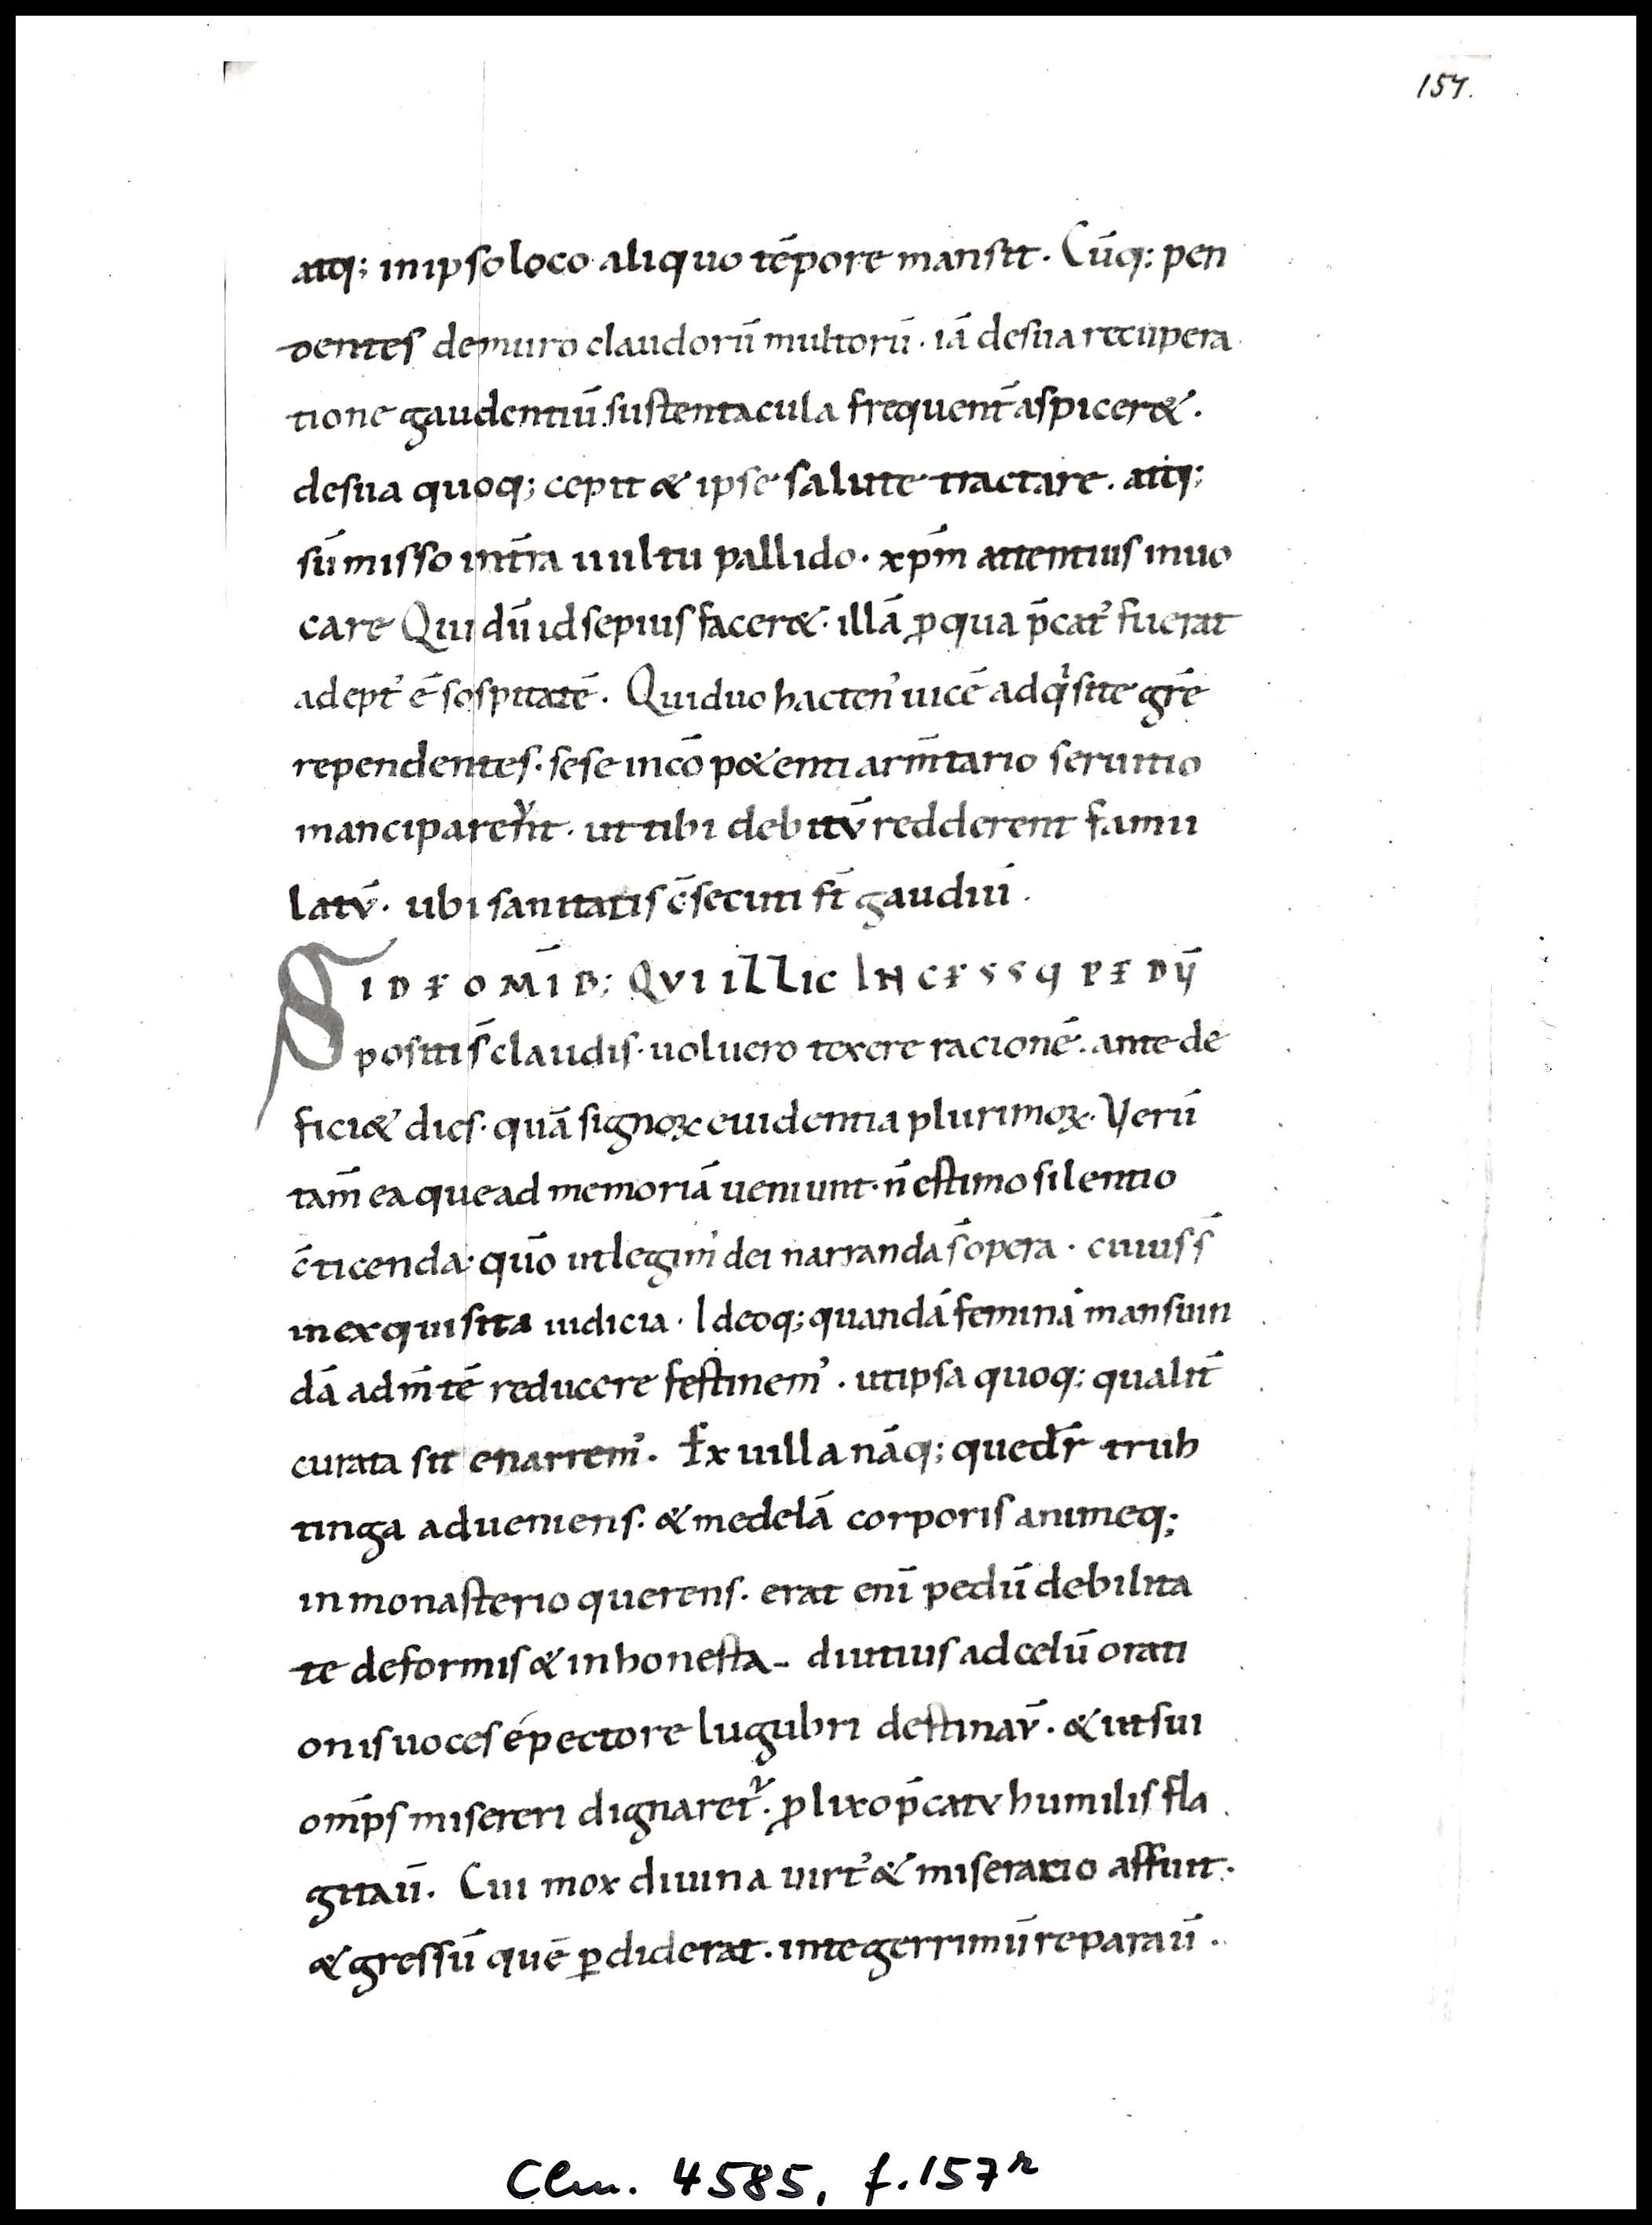 157.
atq; in ipso loco aliquo tēpore mansit. Cūq; pen
dentes de muro claudorū multorū. iā de sua recupera
tione gaudentiū. sustentacula frequent̄ aspicer&.
de sua quoq; cepit & ipse salute tractare. atq;
sūmisso int̄ra uultu pallido. xp̄m attentius inuo
care Qui dū id sepius facer&. illā ꝓ qua p̄cat᾿ fuerat
adept᾿ ē sospitatē. Qui duo hacten᾿ uicē adq̇site gr̄e
rependentes. sese in cō po&enti arm̄tario seruitio
manciparent. ut tibi debitv̄ redderent famu
latv̄. ubi sanitatis c̄secuti st̄ gaudiū.
SI DE OM̄IB; QVI ILLIC INCESSQ PEDŪ
positis̄ claudis. uoluero texere racionē. ante de
fici& dies. quā signoꝝ euidentia plurimoꝝ. Verū
tam̄ ea que ad memoriā ueniunt. n̄ estimo silentio
c̄ticenda. quō ut legim᾿ dei narranda s̄ opera. cuius s̄
inexquisita iudicia. Ideoq; quandā feminā mansuin
dā ad m̄tē reducere festinem᾿. ut ipsa quoq; qualit̄
curata sit enarrem᾿. Ex uilla nāq; que dr̄ truh
tinga adueniens. & medelā corporis animeq;
in monasterio querens. erat eni̅ pedū debilita
te deformis & inhonesta– diutius ad celū orati
onis uoces é pectore lugubri destinav̄. & ut sui
om̄ps misereri dignaret᷑. ꝓlixo p̄catv humilis fla
gitaū. Cui mox diuina uirt᾿ & miseracio affuit.
& gressū quē ꝑdiderat. integerrimū reparaū.
Clm. 4585, f. 157r